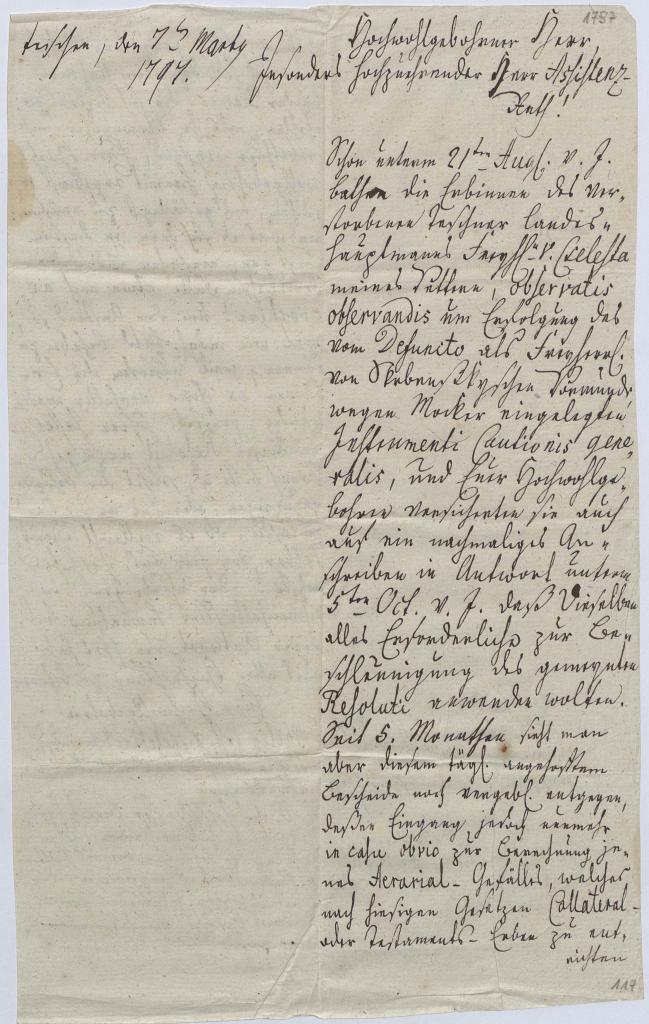 1797
Teschen, den 7t Marty
1797.
Hochwohlgebohrner Herr,
Insonders hochzuehrender Herr Assistenz-
Rath!
Schon unterm 21ten Aug. v. J.
bathen die Erbinnen des ver-
storbenen Teschner Landes-
hauptmanns Freyh. v. Czelesta
meines Vettern, observatis
observandis um Erfolgung des
vom Defuncto als Freyherrl.
von Skrbenskyschen Vormunds
wegen Mocker eingelegten
Instrumenti Cautionis gene-
ralis, und Euer Hochwohlge-
bohren versicherten sie auch
auf ein nachmaliges An-
schreiben in Antwort unterm
5ten Oct. v. J. daß Dieselben
alles Erforderliche zur Be-
schleunigung des
Resoluti anwenden wolten.
Seit 5. Monathen sieht man
aber diesem tägl. angehofften
Bescheide noch vergebl. entgegen,
deßen Eingang jedoch nunmehr
in casu obvio zur Berechnung je-
nes Aerarial-Gefälles, welches
nach hiesigen Gesetzen Collateral-
oder Testaments-Erben zu ent-
richten
117